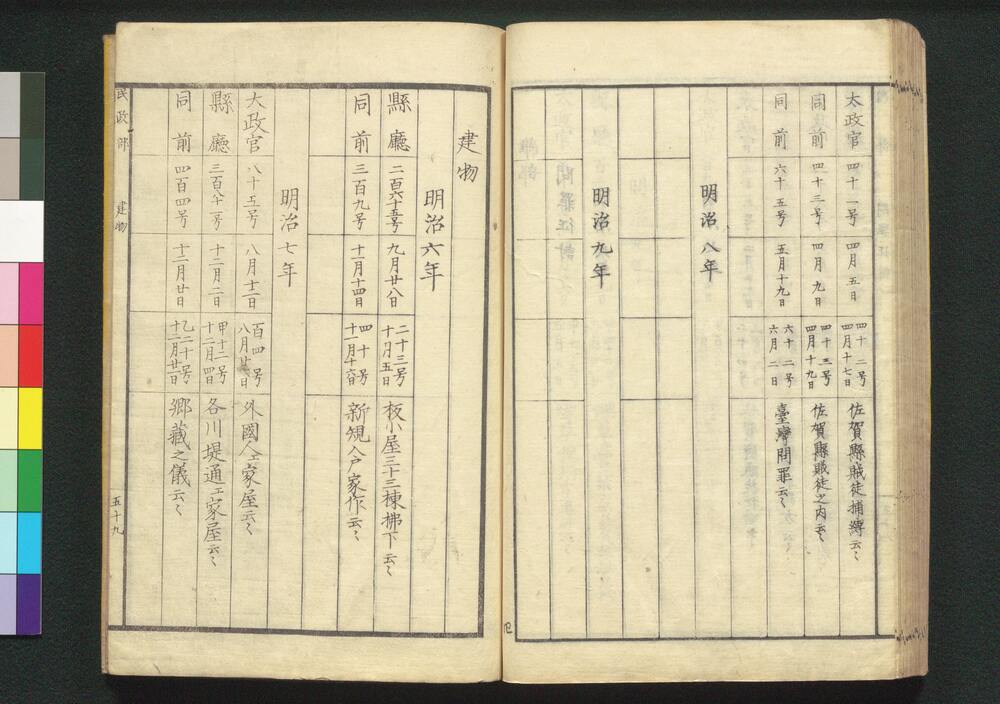 太政官 四十一号 四月五日 四十二号 四月十七日 佐賀縣賊徒捕縛云〻
同前 四十三号 四月九日 四十三号 四月十九日 佐賀縣賊徒之内云〻
同前 六十五号 五月十九日 六十二号 六月二日 臺灣問罪云〻
明治八年
明治九年
建物
明治六年
縣廳 二百六十壱号 九月廿八日 二十三号 十月五日 板小屋三十三棟拂下云〻
同前 三百九号 十一月十四日 四十号 十一月十六日 新規人戸家作云〻
明治七年
太政官 八十五号 八月十二日 百四号 八月廿 日 外國人エ家屋云〻
縣廳 三百八十二号 十二月二日 甲十二号 十二月四日 各川堤通エ家屋云〻
同前 四百四号 十二月廿日 乙二十号 十二月廿二日 郷藏之儀云〻
民政部 建物 五十九